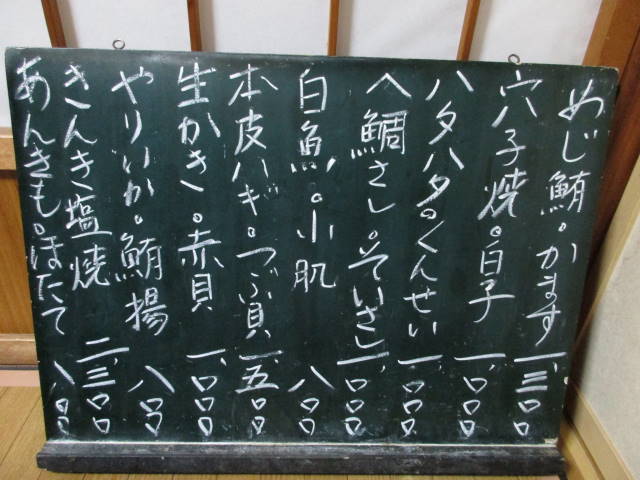 めじ鮪。かます 一、三〇〇
穴子焼。白子 一、〇〇〇
ハタハタ。くんせい 一、〇〇〇
へ鯛さし。そいさし 一、〇〇〇
白魚。小肌 八〇〇
本皮ハギ。つぶ貝 一、五〇〇
生かき。赤貝 一、〇〇〇
やりいか。鮪揚 八〇〇
きんき塩焼 二、三〇〇
あんきも。ほたて 八〇〇